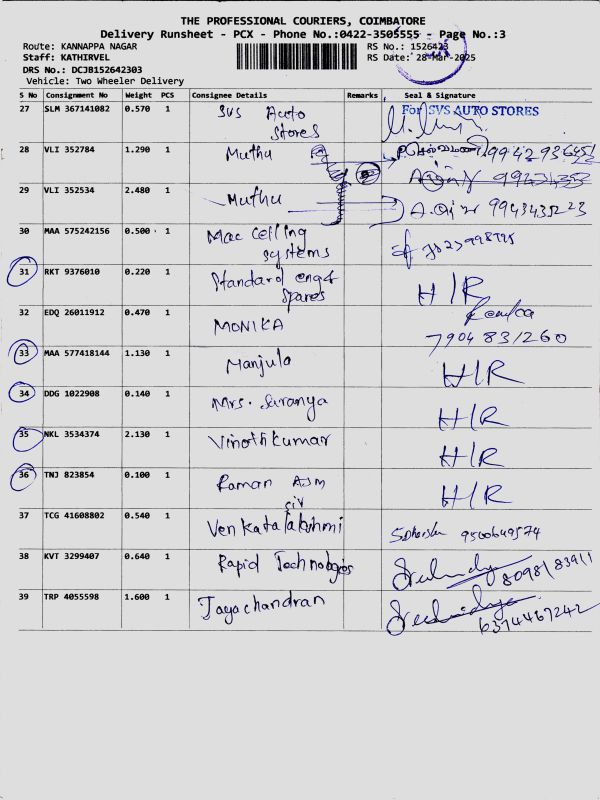 THE PROFESSIONAL COURIERS, COIMBATORE
Delivery Runsheet - PCX - Phone No.:0422-3505555 - Page No.:3
Route: KANNAPPA NAGAR RS No.: 1526423
Staff: KATHIRVEL RS Date: 28-Mar-2025
DRS No.: DCJB152642303
Vehicle: Two Wheeler Delivery
S No Consignment No Weight PCS Consignee Details Remarks Seal & Signature
27 SLM 367141082 0.570 1 SVS Auto Stores For SVS AUTO STORES
28 VLI 352784 1.290 1 Muthu
29 VLI 352534 2.480 1 Muthu 9943435223
30 MAA 575242156 0.500 1 Mac Ceiling systems
31 RKT 9376010 0.220 1 Standard engg Spares H/R
32 EDQ 26011912 0.470 1 MONIKA 7904831260
33 MAA 577418144 1.130 1 Manjula H/R
34 DDG 1022908 0.140 1 Mrs. Saranya H/R
35 NKL 3534374 2.130 1 Vinothkumar H/R
36 TNJ 823854 0.100 1 Raman H/R
37 TCG 41608802 0.540 1 Venkatalakshmi 9500649574
38 KVT 3299407 0.640 1 Rapid Technologies
39 TRP 4055598 1.600 1 Jayachandran 6374467242